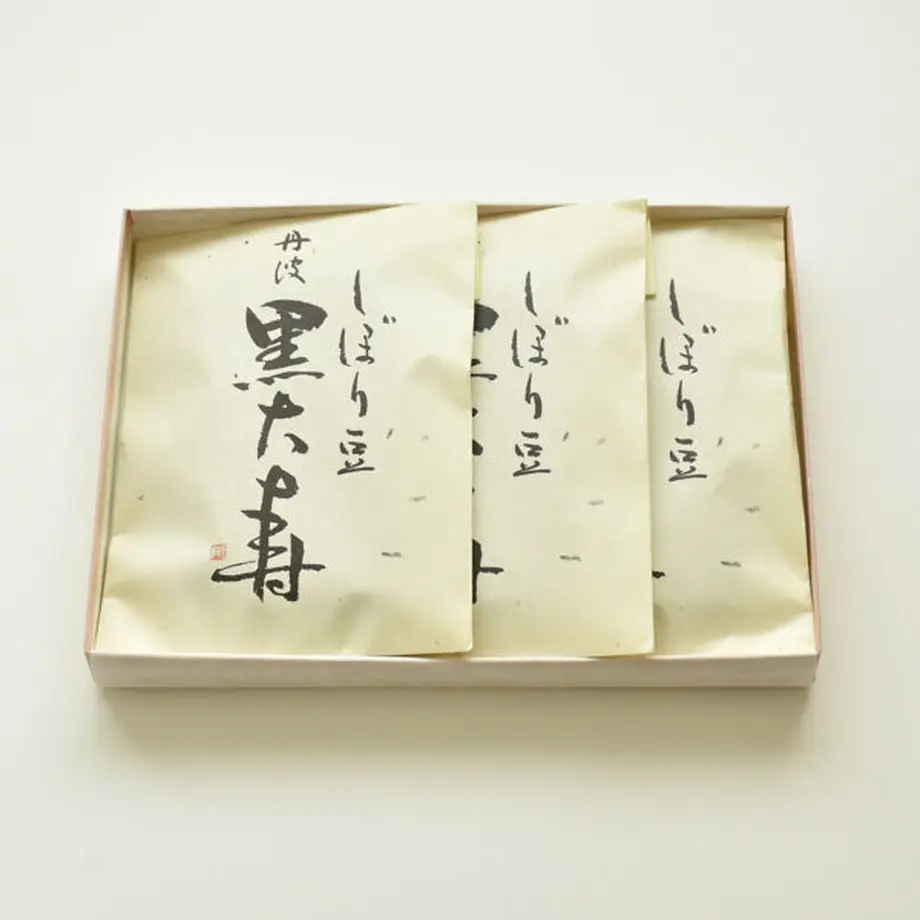 しぼり豆
丹波
黒大寿
しぼり豆
しぼり豆